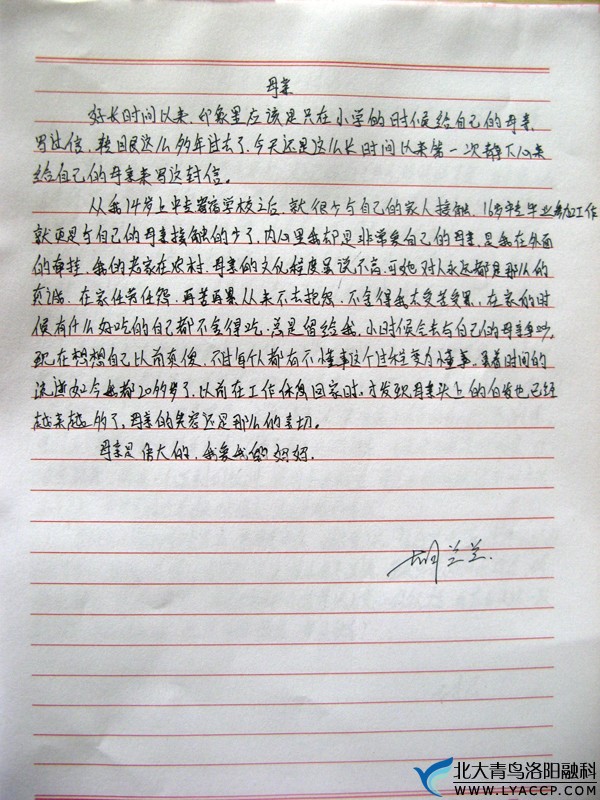 母亲
好长时间以来,印象里应该是只在小学的时候给自己的母亲
写过信,转目民这么多年过去了,今天还是这么长时间以来第一次静下心来
给自己的母亲来写这封信。
从我14岁上中专寄宿学校之后,就很少与自己的家人接触,16岁中专毕业参加工作
就更是与自己的母亲接触的少了,内心里我却是非常爱自己的母亲,是我在外面
的牵挂,我的老家在农村,母亲的文化程度虽说不高,可她对人永远都是那么的
真诚,在家任劳任怨,再苦再累从来不去抱怨,不舍得我去受苦受累,在家的时
候有什么好吃的自己都不舍得吃,总是留给我,小时候会去与自己的母亲争吵,
现在想想自己以前真傻,不过每个人都有不懂事这个过程变为懂事。随着时间的
流逝如今我都20多岁了,以前在工作休息回家时,才发现母亲头上的白发也已经
越来越多了,母亲的笑容还是那么的亲切。
母亲是伟大的,我爱我的妈妈.
胡兰兰.
北大青鸟洛阳融科
WWW.LYACCP.COM